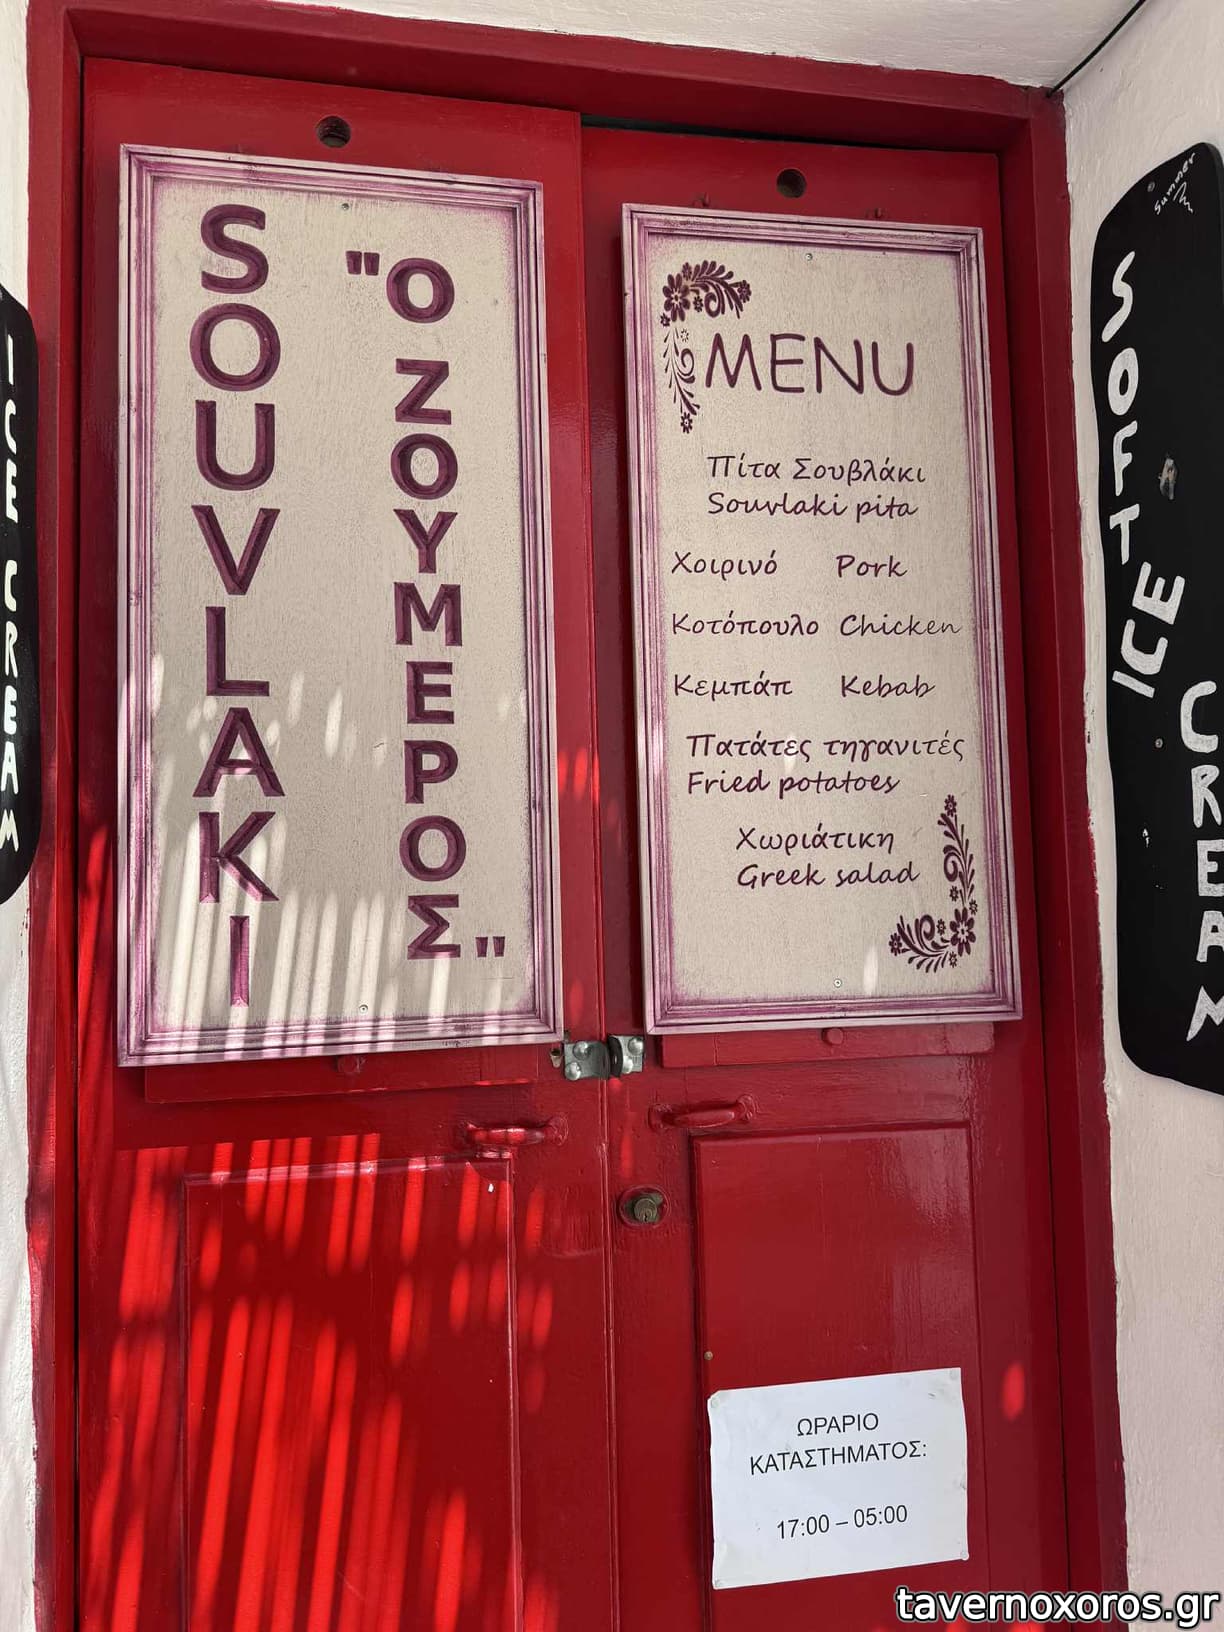 ICE CREAM
SOUVLAKI
"Ο ΖΟΥΜΕΡΟΣ"
MENU
Πίτα Σουβλάκι
Souvlaki pita
Χοιρινό Pork
Κοτόπουλο Chicken
Κεμπάπ Kebab
Πατάτες τηγανιτές
Fried potatoes
Χωριάτικη
Greek salad
Summer
SOFT ICE CREAM
ΩΡΑΡΙΟ
ΚΑΤΑΣΤΗΜΑΤΟΣ:
17:00 – 05:00
tavernoxoros.gr